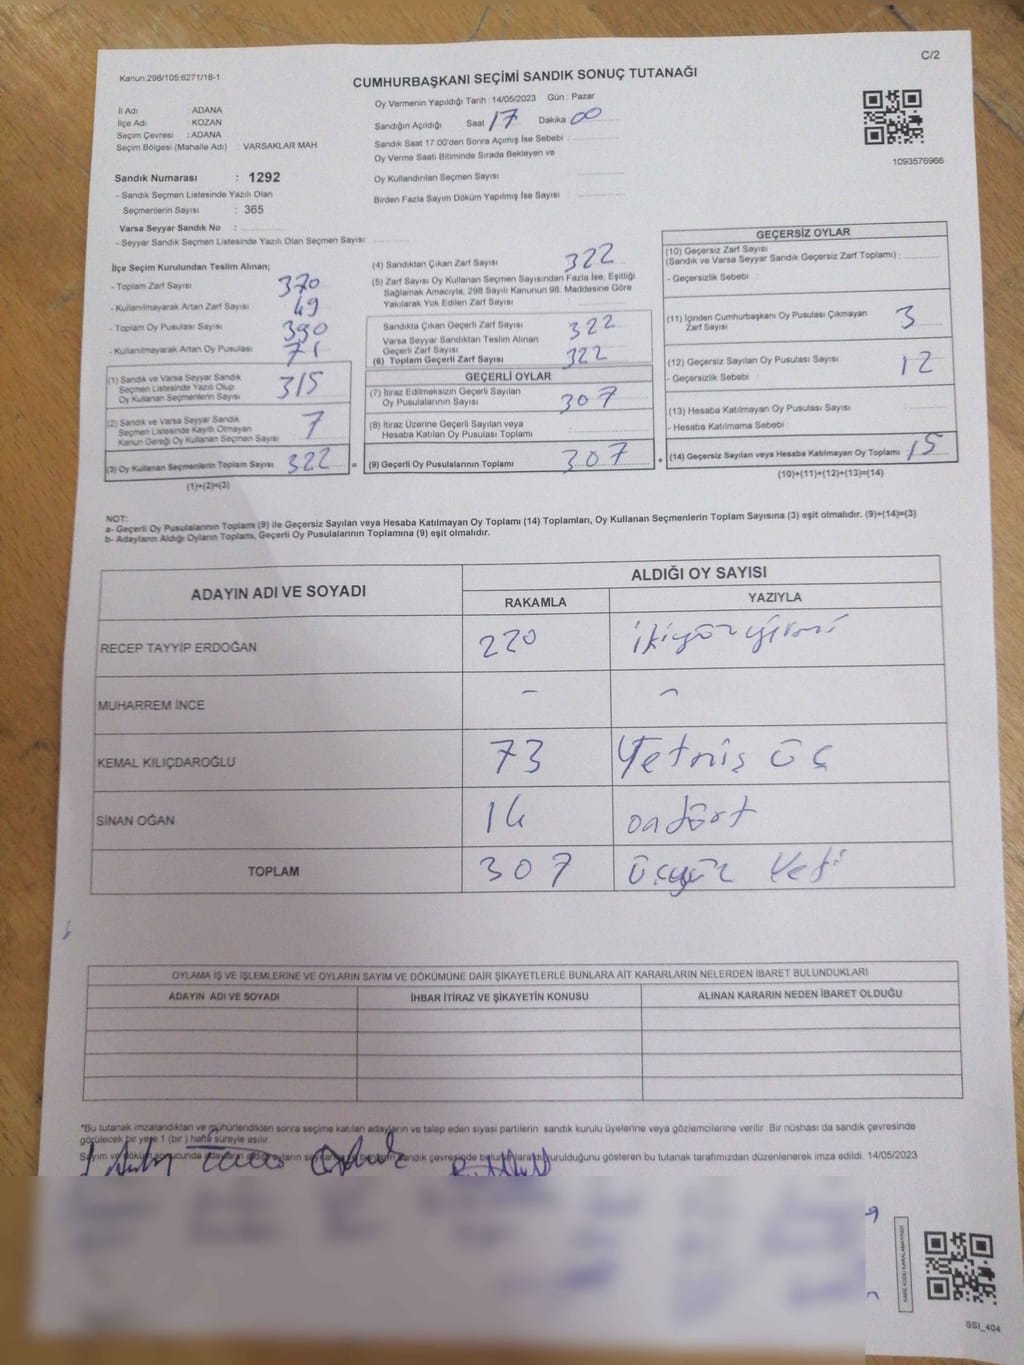 C/2
Kanun:298/105,6271/18-1
CUMHURBAŞKANI SEÇİMİ SANDIK SONUÇ TUTANAĞI
İl Adı : ADANA
İlçe Adı : KOZAN
Seçim Çevresi : ADANA
Seçim Bölgesi (Mahalle Adı) : VARSAKLAR MAH.
Sandık Numarası : 1292
- Sandık Seçmen Listesinde Yazılı Olan
Seçmenlerin Sayısı : 365
Varsa Seyyar Sandık No :
- Seyyar Sandık Seçmen Listesinde Yazılı Olan Seçmen Sayısı:
Oy Vermenin Yapıldığı Tarih : 14/05/2023 Gün : Pazar
Sandığın Açıldığı Saat 17 Dakika 00
Sandık Saat 17.00'den Sonra Açımış İse Sebebi :
Oy Verme Saati Bitiminde Sırada Bekleyen ve
Oy Kullandırılan Seçmen Sayısı :
Birden Fazla Sayım Döküm Yapılmış İse Sayısı :
1093576966
İlçe Seçim Kurulundan Teslim Alınan;
- Toplam Zarf Sayısı : 370
- Kullanılmayarak Artan Zarf Sayısı : 49
- Toplam Oy Pusulası Sayısı : 390
- Kullanılmayarak Artan Oy Pusulası : 71
(1) Sandık ve Varsa Seyyar Sandık
Seçmen Listesinde Yazılı Olup
Oy Kullanan Seçmenlerin Sayısı : 315
(2) Sandık ve Varsa Seyyar Sandık
Seçmen Listesinde Kayıtlı Olmayan
Kanun Gereği Oy Kullanan Seçmen Sayısı : 7
(3) Oy Kullanan Seçmenlerin Toplam Sayısı : 322
(1)+(2)=(3)
(4) Sandıktan Çıkan Zarf Sayısı : 322
(5) Zarf Sayısı Oy Kullanan Seçmen Sayısından Fazla İse, Eşitliği
Sağlamak Amacıyla, 298 Sayılı Kanunun 98. Maddesine Göre
Yakılarak Yok Edilen Zarf Sayısı :
Sandıkta Çıkan Geçerli Zarf Sayısı : 322
Varsa Seyyar Sandıktan Teslim Alınan
Geçerli Zarf Sayısı :
(6) Toplam Geçerli Zarf Sayısı : 322
GEÇERLİ OYLAR
(7) İtiraz Edilmeksizin Geçerli Sayılan
Oy Pusulalarının Sayısı : 307
(8) İtiraz Üzerine Geçerli Sayılan veya
Hesaba Katılan Oy Pusulası Toplamı :
= (9) Geçerli Oy Pusulalarının Toplamı : 307 +
GEÇERSİZ OYLAR
(10) Geçersiz Zarf Sayısı
(Sandık ve Varsa Seyyar Sandık Geçersiz Zarf Toplamı) :
- Geçersizlik Sebebi :
(11) İçinden Cumhurbaşkanı Oy Pusulası Çıkmayan
Zarf Sayısı : 3
(12) Geçersiz Sayılan Oy Pusulası Sayısı : 12
- Geçersizlik Sebebi :
(13) Hesaba Katılmayan Oy Pusulası Sayısı :
- Hesaba Katılmama Sebebi :
(14) Geçersiz Sayılan veya Hesaba Katılmayan Oy Toplamı : 15
(10)+(11)+(12)+(13)=(14)
NOT:
a- Geçerli Oy Pusulalarının Toplamı (9) ile Geçersiz Sayılan veya Hesaba Katılmayan Oy Toplamı (14) Toplamları, Oy Kullanan Seçmenlerin Toplam Sayısına (3) eşit olmalıdır. (9)+(14)=(3)
b- Adayların Aldığı Oyların Toplamı, Geçerli Oy Pusulalarının Toplamına (9) eşit olmalıdır.
ADAYIN ADI VE SOYADI ALDIĞI OY SAYISI
RAKAMLA YAZIYLA
RECEP TAYYİP ERDOĞAN 220 ikiyüz yirmi
MUHARREM İNCE - -
KEMAL KILIÇDAROĞLU 73 Yetmiş üç
SİNAN OĞAN 14 ondört
TOPLAM 307 üçyüz Yedi
OYLAMA İŞ VE İŞLEMLERİNE VE OYLARIN SAYIM VE DÖKÜMÜNE DAİR ŞİKAYETLERLE BUNLARA AİT KARARLARIN NELERDEN İBARET BULUNDUKLARI
ADAYIN ADI VE SOYADI İHBAR İTİRAZ VE ŞİKAYETİN KONUSU ALINAN KARARIN NEDEN İBARET OLDUĞU
*Bu tutanak imzalandıktan ve mühürlendikten sonra seçime katılan adayların ve talep eden siyasi partilerin sandık kurulu üyelerine veya gözlemcilerine verilir. Bir nüshası da sandık çevresinde
görülecek bir yere 1 (bir ) hafta süreyle asılır.
Sayım ve döküm sonucunda sandık çevresinde duyurulduğunu gösteren bu tutanak tarafımızdan düzenlenerek imza edildi. 14/05/2023
SSI_404